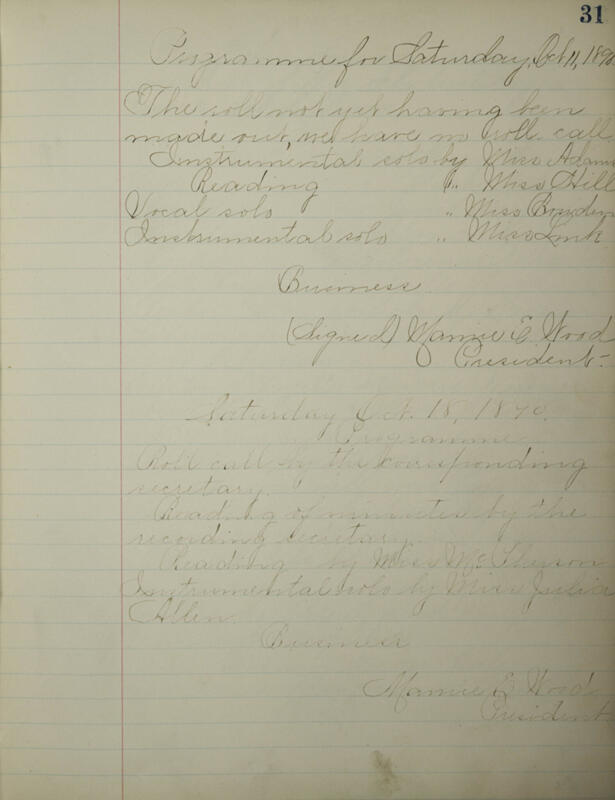 31
Programme for Saturday, Oct. 11, 1890
The roll not yet having been
made out, we have no roll call
Instrumental solo by Miss Adams
Reading " Miss Hill
Vocal solo " Miss
Instrumental solo " Miss Link
Business
(Signed) Mamie E. Wood
President-
Saturday Oct. 18, 1890.
Programme
Roll call by the corresponding
secretary.
Reading of minutes by the
recording secretary.
Reading by Miss McPherson
Instrumental solo by Miss Julia
Allen.
Business
Mamie E. Wood
President